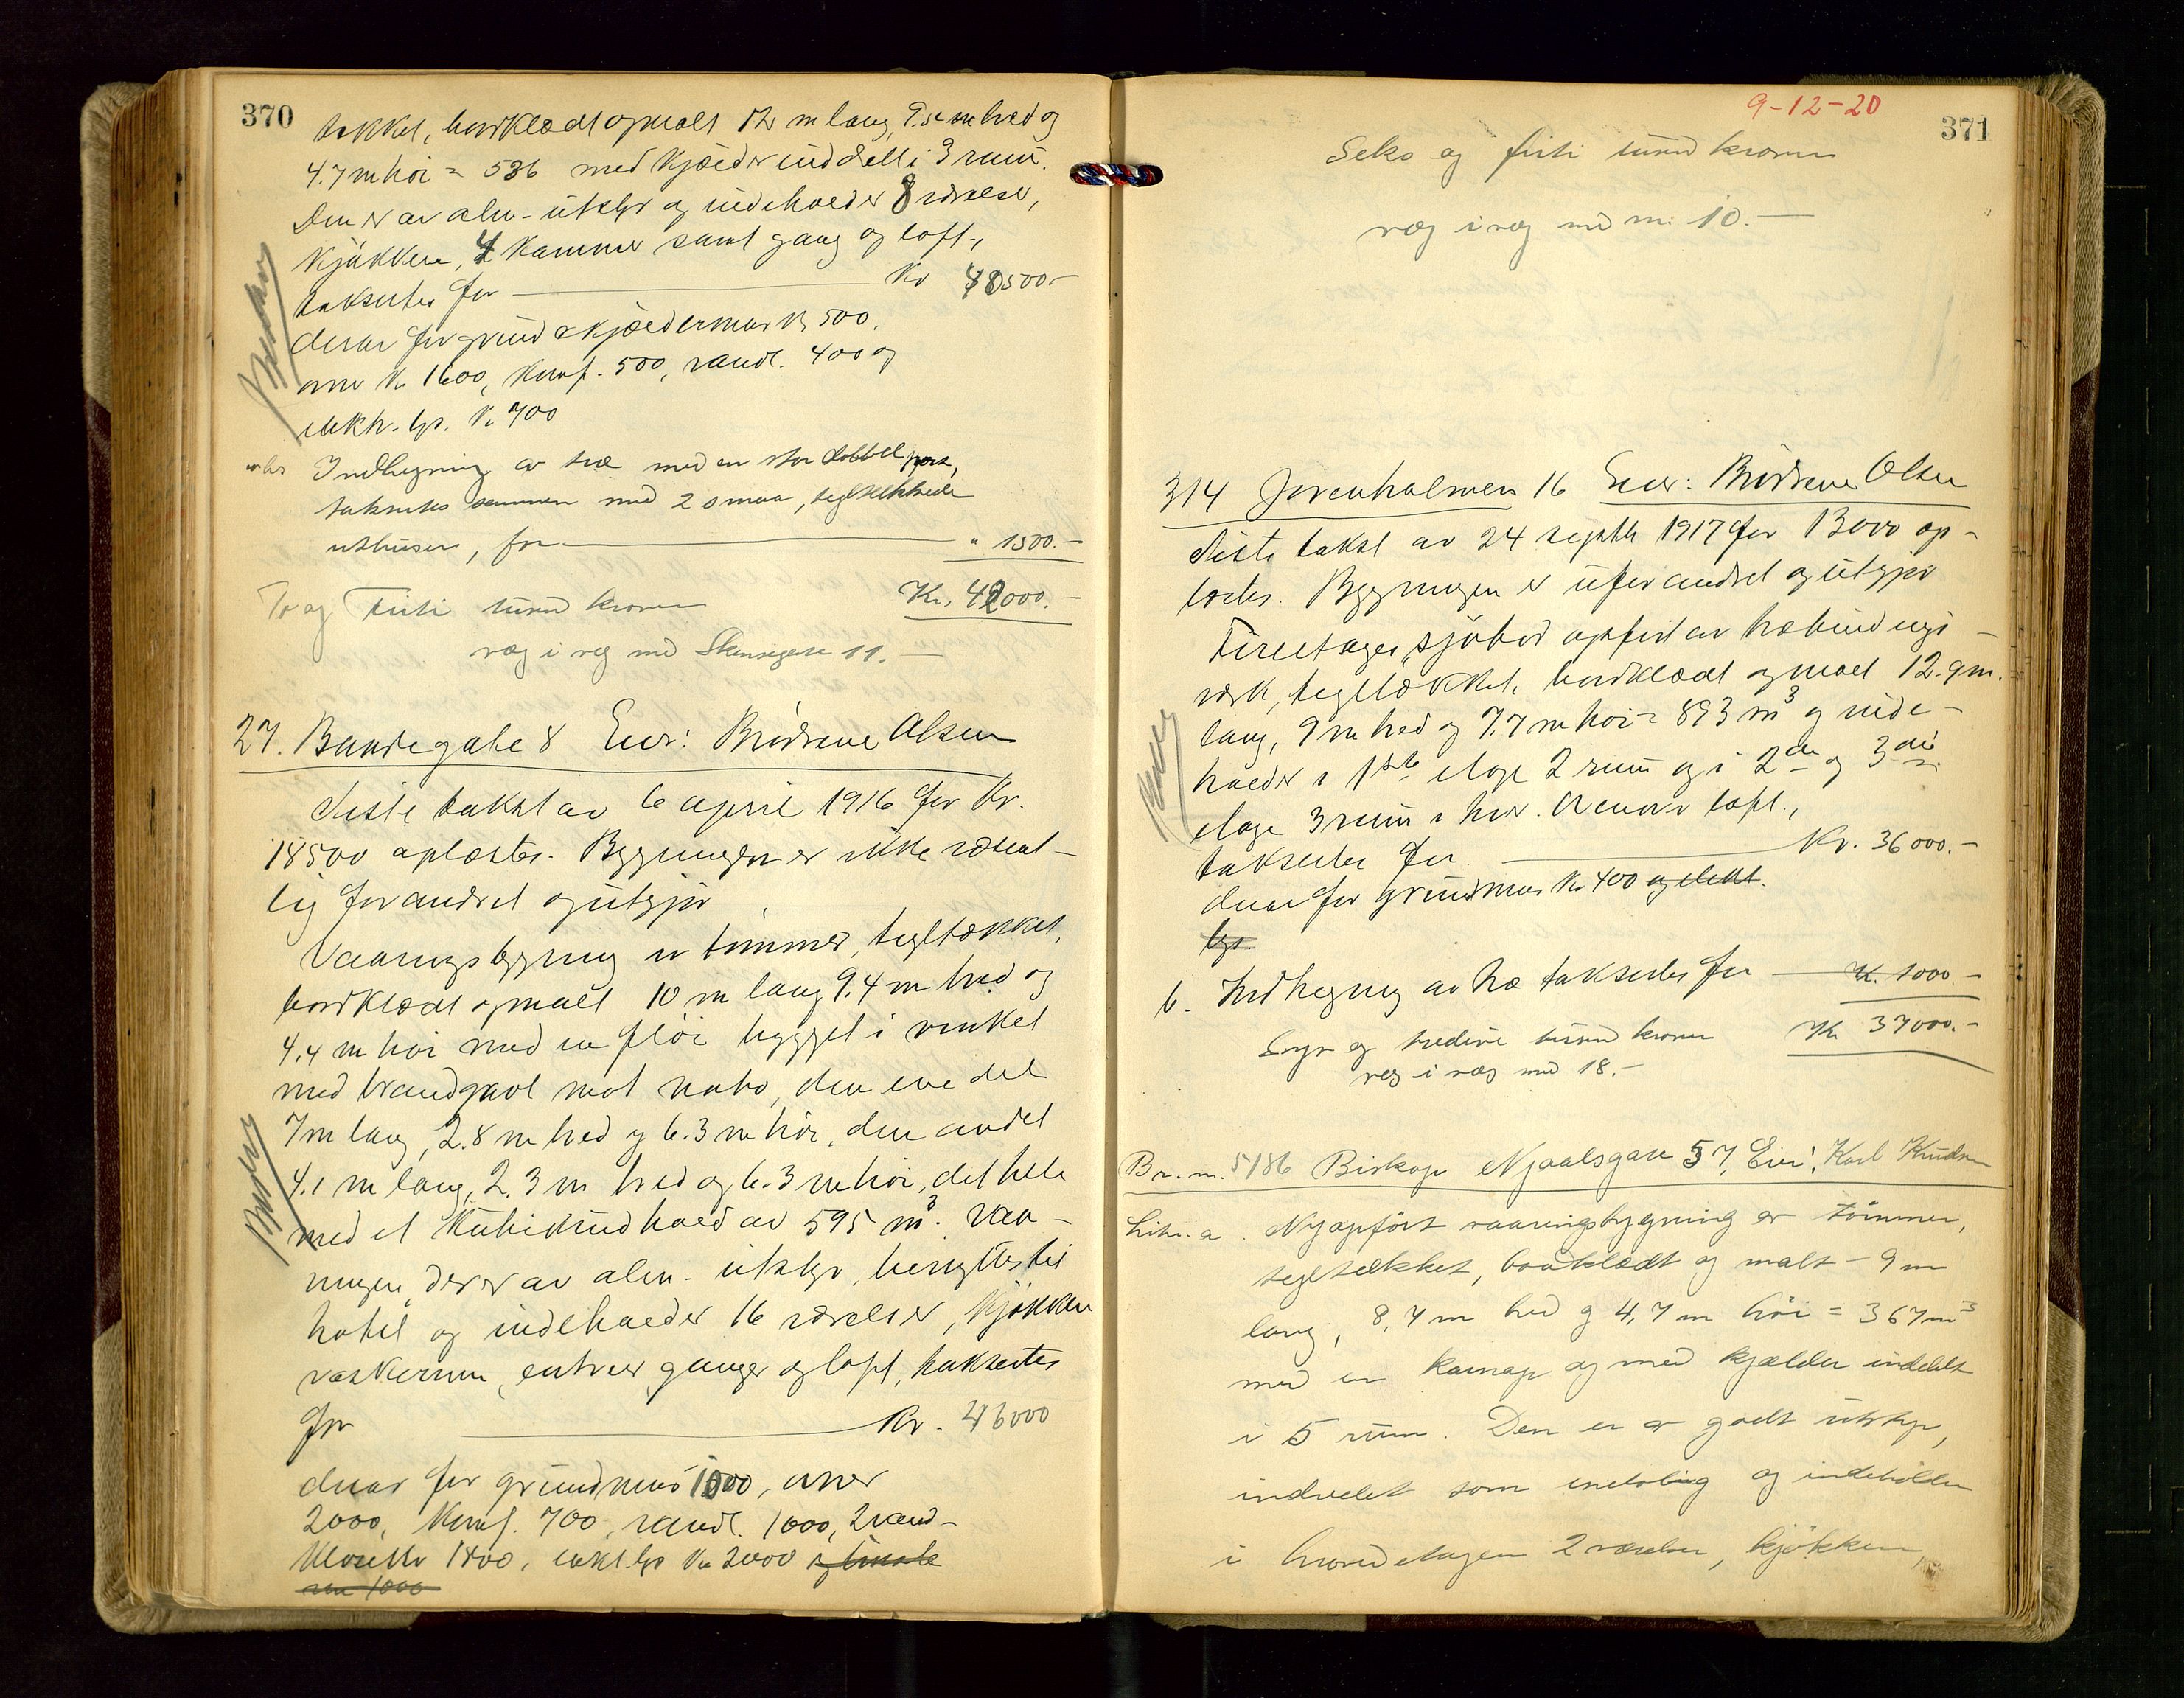 370
tækket, bordklædt og malt 12 m lang, 9.5 m bred og
4.7 m høi = 536 med kjælder inddelt i 3 rum.
Den er av alm. utstyr og indeholder 8 værelser,
kjøkken, 4 kammer samt gang og loft,
takseres for — Kr 40500.-
derav for grund & kjældermur kr 500,
ovne kr 1600, komf. 500, vandl. 400 og
elektr. lys. kr 700
Indhegning av træ med en stor dobbel port,
takseres sammen med 2 smaa, tegltækkede
uthuser, for — " 1500.-
To og firti tusind kroner Kr. 42000.-
væg i væg med Skansegaten 11.-
27. Bandegate 8 Eier: Brødrene Olsen
Siste takst av 6 april 1916 for Kr.
18500 oplæstes. Bygningen er ikke væsent-
lig forandret og utgjør
Vaaningsbygning av tømmer, tegltækket,
bordklædt og malt 10 m lang 9.4 m bred og
4.4 m høi med en fløi bygget i vinkel
med brandgavl mot nabo, den ene del
7 m lang, 2.8 m bred og 6.3 m høi, den andel
4.1 m lang, 2.3 m bred og 6.3 m høi, det hele
med et kubikindhold av 595 m³. Vaa-
ningen, der er av alm. utstyr, benyttes til
hotel og indeholder 16 værelser, kjøkken
vaskerum, entreer ganger og loft, takseres
for — Kr. 46000
derav for grundmur 1000, ovner
2000, komf. 700, vandl. 1000, 2 vand-
klosetter 1800, elekt. lys kr 2000 og
1000
9-12-20
371
Seks og firti tusind kroner
væg i væg med nr. 10.-
314 Jorenholmen 16 Eier: Brødrene Olsen
Siste takst av 24 septbr 1917 for 13000 op-
læstes. Bygningen er uforandret og utgjør
Treetages sjøbod opført av træbindings-
verk, tegltækket, bordklædt og malt 12.9 m.
lang, 9 m bred og 7.7 m høi = 893 m³ og inde-
holder i 1ste etage 2 rum og i 2den og 3die
etage 3 rum i hver. Ovenover loft.,
takseres for — Kr. 36000.-
derav for grundmur kr 400 og elekt.
lys.
b. Indhegning av træ takseres for — Kr. 1000.-
Syv og tredive tusind kroner Kr 37000.-
væg i væg med 18.-
Br. nr. 5186 Biskop Njaalsgate 57, Eier: Karl Knudsen
Litr. a. Nyopført vaaningsbygning av tømmer,
tegltækket, bordklædt og malt - 9 m
lang, 8,7 m bred og 4,7 m høi = 367 m³
med en karnap og med kjælder inddelt
i 5 rum. Den er av godt utstyr,
indredet som enebolig og indeholder
i hovedetagen 2 værelser, kjøkken,